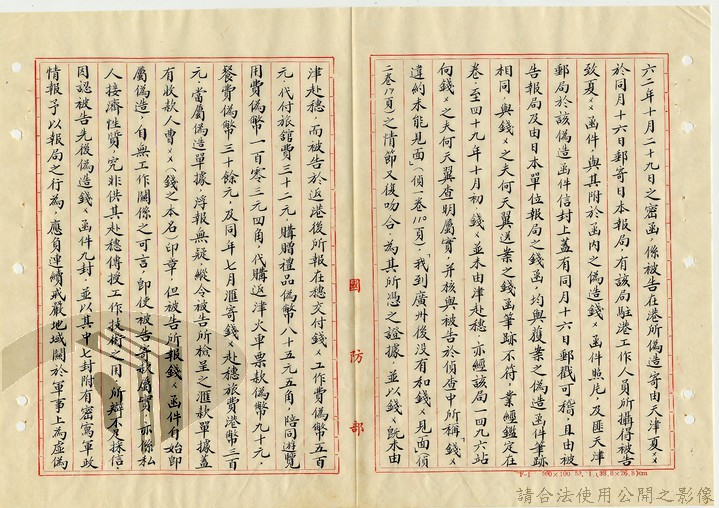 六二年十月二十九日之密函，係被告在港所偽造寄由天津夏××
於同月十六日郵寄日本報局，有該局駐港工作人員所攝得被告
致夏××函件，與其附於函內之偽造錢××函件照片，及匪天津
郵局於該偽造函件信封上蓋有同月十六日郵戳可稽，且由被
告報局及由日本單位報局之錢函，均與獲案之偽造函件筆跡
相同，與錢××之夫何天翼送案之錢函筆跡不符，業經鑑定在
卷，至四十九年十月初，錢××並未由津赴穗，亦經該局一四九六站
向錢××之夫何天翼查明屬實，并核與被告於偵查中所稱「錢××
違約未能見面」（偵一卷110頁）「我到廣州後沒有和錢××見面」（偵
二卷17頁）之情節又復吻合，為其所憑之證據，並以錢××既未由
津赴穗，而被告於返港後所報在穗交付錢××工作費偽幣五百
元，代付旅館費三十二元，購贈禮品偽幣八十五元五角，陪同遊覽
用費偽幣一百零三元四角，代購返津火車票款偽幣九十元，
餐費偽幣三十餘元，及同年七月滙寄錢××赴穗旅費港幣三百
元，當屬偽造單據，浮報無疑，縱令被告所檢呈之滙款單據蓋
有收款人曹××（錢之本名）印章，但被告所報錢××函件有始即
屬偽造，自無工作關係之可言，即使被告寄款屬實，亦係私
人接濟性質，究非供其赴穗傳授工作技術之用，所辯不足採信，
因認被告先後偽造錢××函件九封，並以其中七封附有密寫軍政
情報予以報局之行為，應負連續戒嚴地域關於軍事上為虛偽
國防部
F-1 500×100 53. 1. (38.8×26.8)cm
請合法使用公開之影像